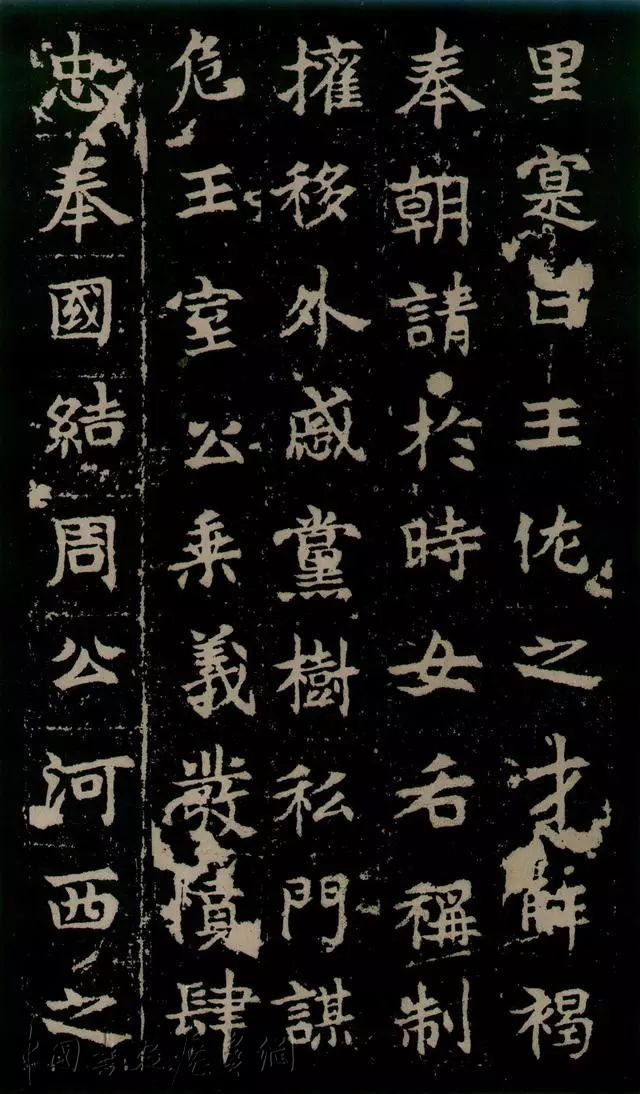 里寔曰王佐之才解褐
奉朝請於時女后稱制
擁移外戚黨樹私門謀
危王室公乘義發憤肆
忠奉國結周公河西之